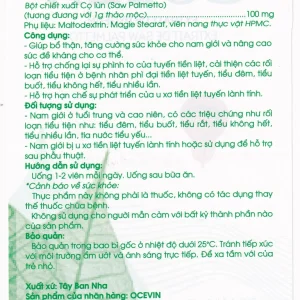 Bột chiết xuất Cọ lùn (Saw Palmetto)
(tương đương với 1g thảo mộc)........................100 mg
Phụ liệu: Maltodextrin, Magie Stearat, viên nang thực vật HPMC.
Công dụng:
- Giúp bổ thận, tăng cường sức khỏe cho nam giới và nâng cao
sức đề kháng cho cơ thể.
- Hỗ trợ chống lại sự phình to của tuyến tiền liệt, cải thiện các rối
loạn tiểu tiện ở bệnh nhân phì đại tiền liệt tuyến, tiểu đêm, tiểu
buốt, tiểu không hết, tiểu nhiều lần.
- Hỗ trợ hạn chế sự phát triển của u xơ tiền liệt tuyến lành tính.
Đối tượng sử dụng:
- Nam giới ở tuổi trung và cao niên, có các triệu chứng như rối
loạn tiểu tiện như: tiểu đêm, tiểu buốt, tiểu rắt, tiểu không hết,
tiểu nhiều lần, tia nước tiểu yếu...
- Nam giới bị u xơ tiền liệt tuyến lành tính hoặc sử dụng để hỗ trợ
sau phẫu thuật.
Hướng dẫn sử dụng:
Uống 1-2 viên mỗi ngày. Uống sau bữa ăn.
*Cảnh báo về sức khỏe:
Thực phẩm này không phải là thuốc, không có tác dụng thay
thế thuốc chữa bệnh.
Không sử dụng cho người mẫn cảm với bất kỳ thành phần nào
của sản phẩm.
Bảo quản:
Bảo quản trong bao bì gốc ở nhiệt độ dưới 25°C. Tránh tiếp xúc
với môi trường ẩm ướt và ánh sáng trực tiếp. Để xa tầm với của
trẻ nhỏ.
Xuất xứ: Tây Ban Nha
Sản phẩm của nhãn hàng: OCEVIN